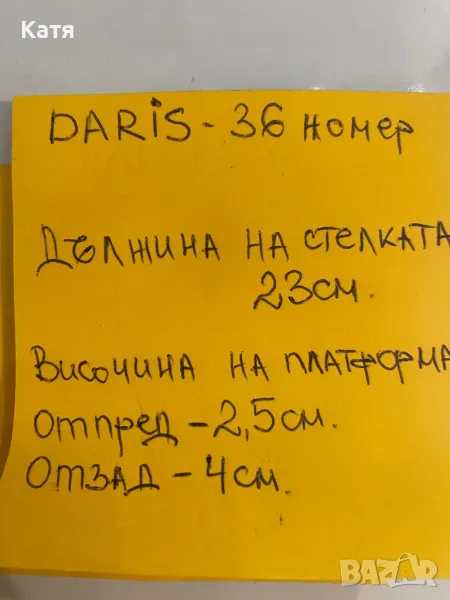 Катя
DARiS - 36 номер
Дължина на стелката
23см.
Височина на платформа
Отпред - 2,5см.
Отзад - 4см.
BAZAR